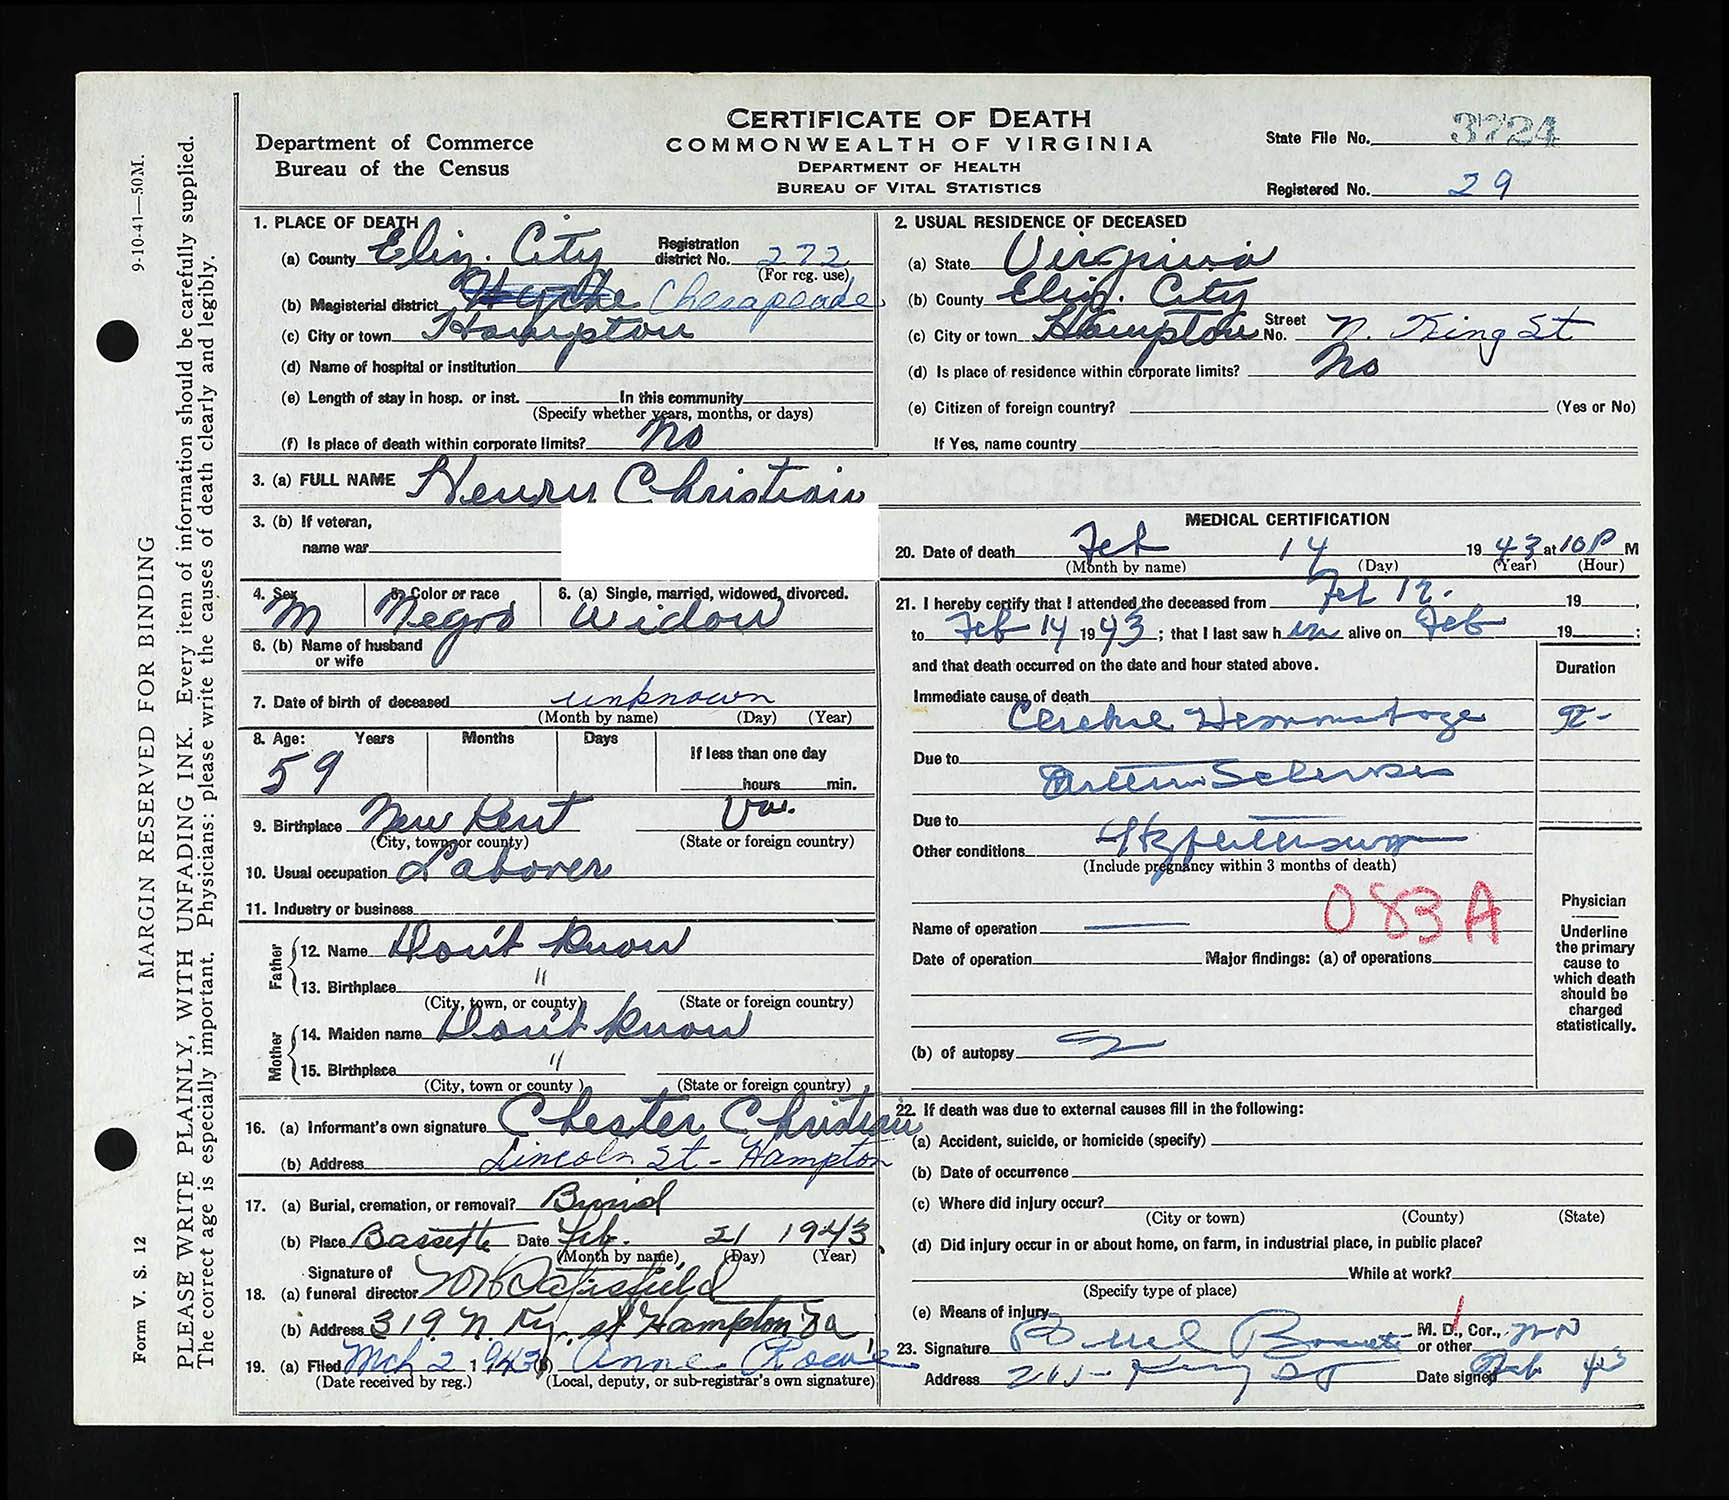 CERTIFICATE OF DEATH
COMMONWEALTH OF VIRGINIA
DEPARTMENT OF HEALTH
BUREAU OF VITAL STATISTICS
Department of Commerce
Bureau of the Census
State File No. 3724
Registered No. 29
9-10-41—50M.
MARGIN RESERVED FOR BINDING
PLEASE WRITE PLAINLY, WITH UNFADING INK. Every item of information should be carefully supplied.
The correct age is especially important. Physicians: please write the causes of death clearly and legibly.
Form V. S. 12
1. PLACE OF DEATH
(a) County Eliz. City Registration district No. 272
(For reg. use)
(b) Magisterial district Chesapeake
(c) City or town Hampton
(d) Name of hospital or institution
(e) Length of stay in hosp. or inst. In this community
(Specify whether years, months, or days)
(f) Is place of death within corporate limits? No
2. USUAL RESIDENCE OF DECEASED
(a) State Virginia
(b) County Eliz. City
(c) City or town Hampton Street No. N. King St
(d) Is place of residence within corporate limits? No
(e) Citizen of foreign country? (Yes or No)
If Yes, name country
3. (a) FULL NAME Henry Christian
3. (b) If veteran,
name war
4. Sex M 5. Color or race Negro 6. (a) Single, married, widowed, divorced. Widow
6. (b) Name of husband
or wife
7. Date of birth of deceased unknown
(Month by name) (Day) (Year)
8. Age: Years Months Days If less than one day
59 hours min.
9. Birthplace New Kent Va.
(City, town, or county) (State or foreign country)
10. Usual occupation Laborer
11. Industry or business
Father
12. Name Don't know
13. Birthplace "
(City, town, or county) (State or foreign country)
Mother
14. Maiden name Don't know
15. Birthplace "
(City, town or county) (State or foreign country)
16. (a) Informant's own signature Chester Christian
(b) Address Lincoln St - Hampton
17. (a) Burial, cremation, or removal? Burial
(b) Place Bassette Date Feb. 21 1943
(Month by name) (Day) (Year)
Signature of
18. (a) funeral director
(b) Address 319 N. Kg. st Hampton Va
19. (a) Filed Mch 2 1943 (b) Anne
(Date received by reg.) (Local, deputy, or sub-registrar's own signature)
MEDICAL CERTIFICATION
20. Date of death Feb 14 1943 at 10 P M
(Month by name) (Day) (Year) (Hour)
21. I hereby certify that I attended the deceased from Feb 12. 19 ,
to Feb 14 1943; that I last saw him alive on Feb 19 ;
and that death occurred on the date and hour stated above.
Duration
Immediate cause of death
Due to
Due to
Other conditions Hypertension
(Include pregnancy within 3 months of death)
083A
Name of operation —
Date of operation Major findings: (a) of operations
(b) of autopsy
Physician
Underline
the primary
cause to
which death
should be
charged
statistically.
22. If death was due to external causes fill in the following:
(a) Accident, suicide, or homicide (specify)
(b) Date of occurrence
(c) Where did injury occur?
(City or town) (County) (State)
(d) Did injury occur in or about home, on farm, in industrial place, in public place?
While at work?
(Specify type of place)
(e) Means of injury
23. Signature M. D., Cor., or other
Address King St Date signed Feb 43